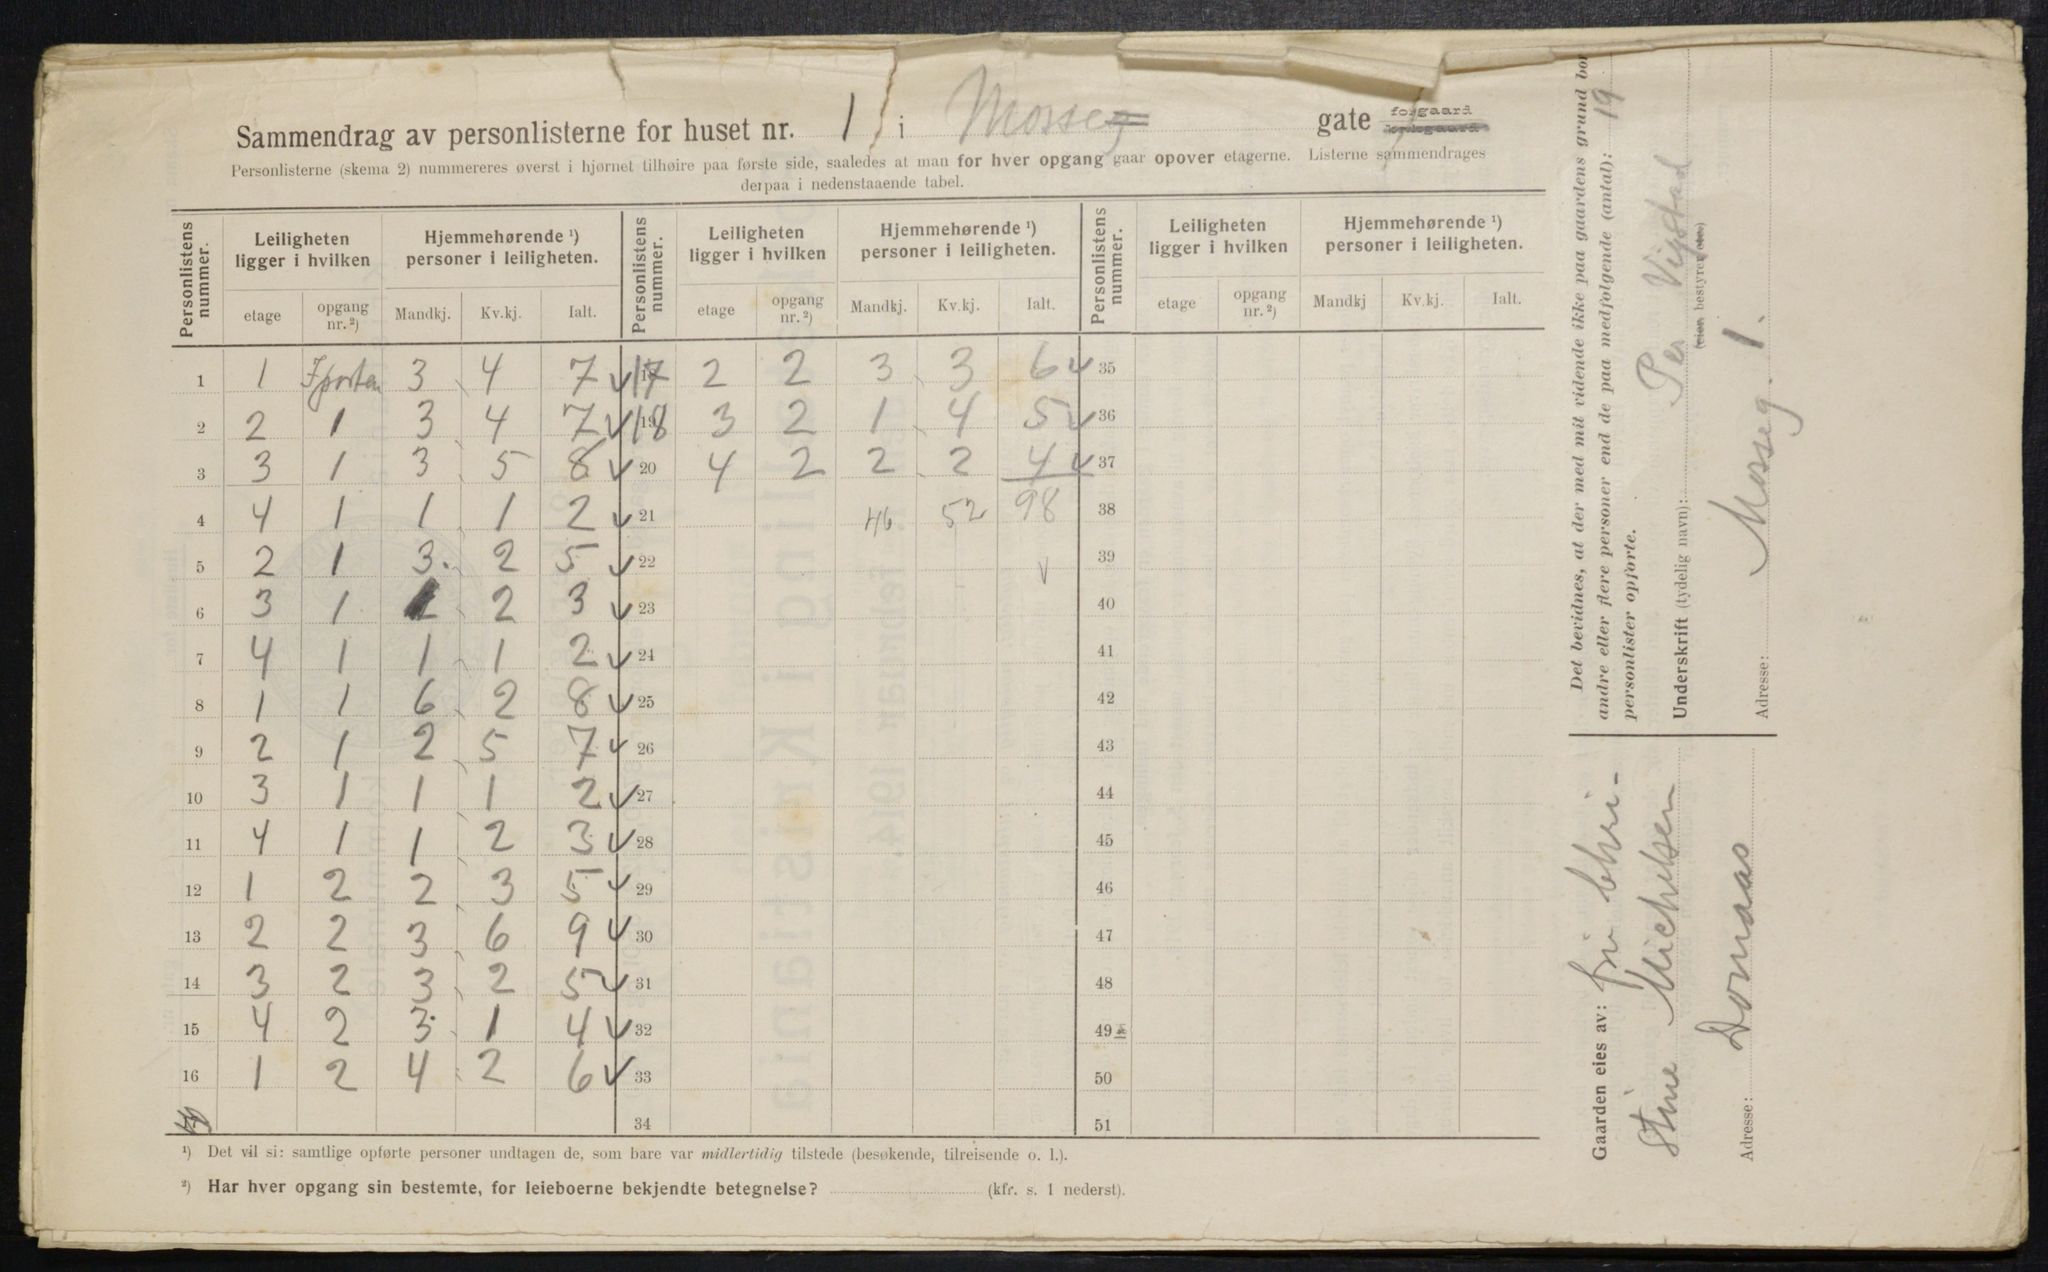 Sammendrag av personlisterne for huset nr. 1 i Mosseg gate forgaard
Personlisterne (skema 2) nummereres øverst i hjørnet tilhøire paa første side, saaledes at man for hver opgang gaar opover etagerne. Listerne sammendrages
derpaa i nedenstaaende tabel.
Personlistens nummer. Leiligheten ligger i hvilken Hjemmehørende ¹) personer i leiligheten. Personlistens nummer. Leiligheten ligger i hvilken Hjemmehørende ¹) personer i leiligheten. Personlistens nummer. Leiligheten ligger i hvilken Hjemmehørende ¹) personer i leiligheten.
etage opgang nr. ²) Mandkj. Kv.kj. Ialt. etage opgang nr. ²) Mandkj. Kv.kj. Ialt. etage opgang nr. ²) Mandkj Kv.kj. Ialt.
1 1 I porten 3 4 7 17 2 2 3 3 6 35
2 2 1 3 4 7 19 18 3 2 1 4 5 36
3 3 1 3 5 8 20 4 2 2 2 4 37
4 4 1 1 1 2 21 46 52 98 38
5 2 1 3 2 5 22 39
6 3 1 1 2 3 23 40
7 4 1 1 1 2 24 41
8 1 1 6 2 8 25 42
9 2 1 2 5 7 26 43
10 3 1 1 1 2 27 44
11 4 1 1 2 3 28 45
12 1 2 2 3 5 29 46
13 2 2 3 6 9 30 47
14 3 2 3 2 5 31 48
15 4 2 3 1 4 32 49
16 1 2 4 2 6 33 50
34 51
¹) Det vil si: samtlige opførte personer undtagen de, som bare var midlertidig tilstede (besøkende, tilreisende o. l.).
²) Har hver opgang sin bestemte, for leieboerne bekjendte betegnelse? (kfr. s. 1 nederst).
Det bevidnes, at der med mit vidende ikke paa gaardens grund bor
andre eller flere personer end de paa medfølgende (antal): 19
personlister opførte.
Underskrift (tydelig navn): Per Vigstad
(eier, bestyrer
Adresse: Mosseg. 1.
Gaarden eies av: fru Chri-
stine Michelsen
Adresse: Domaas